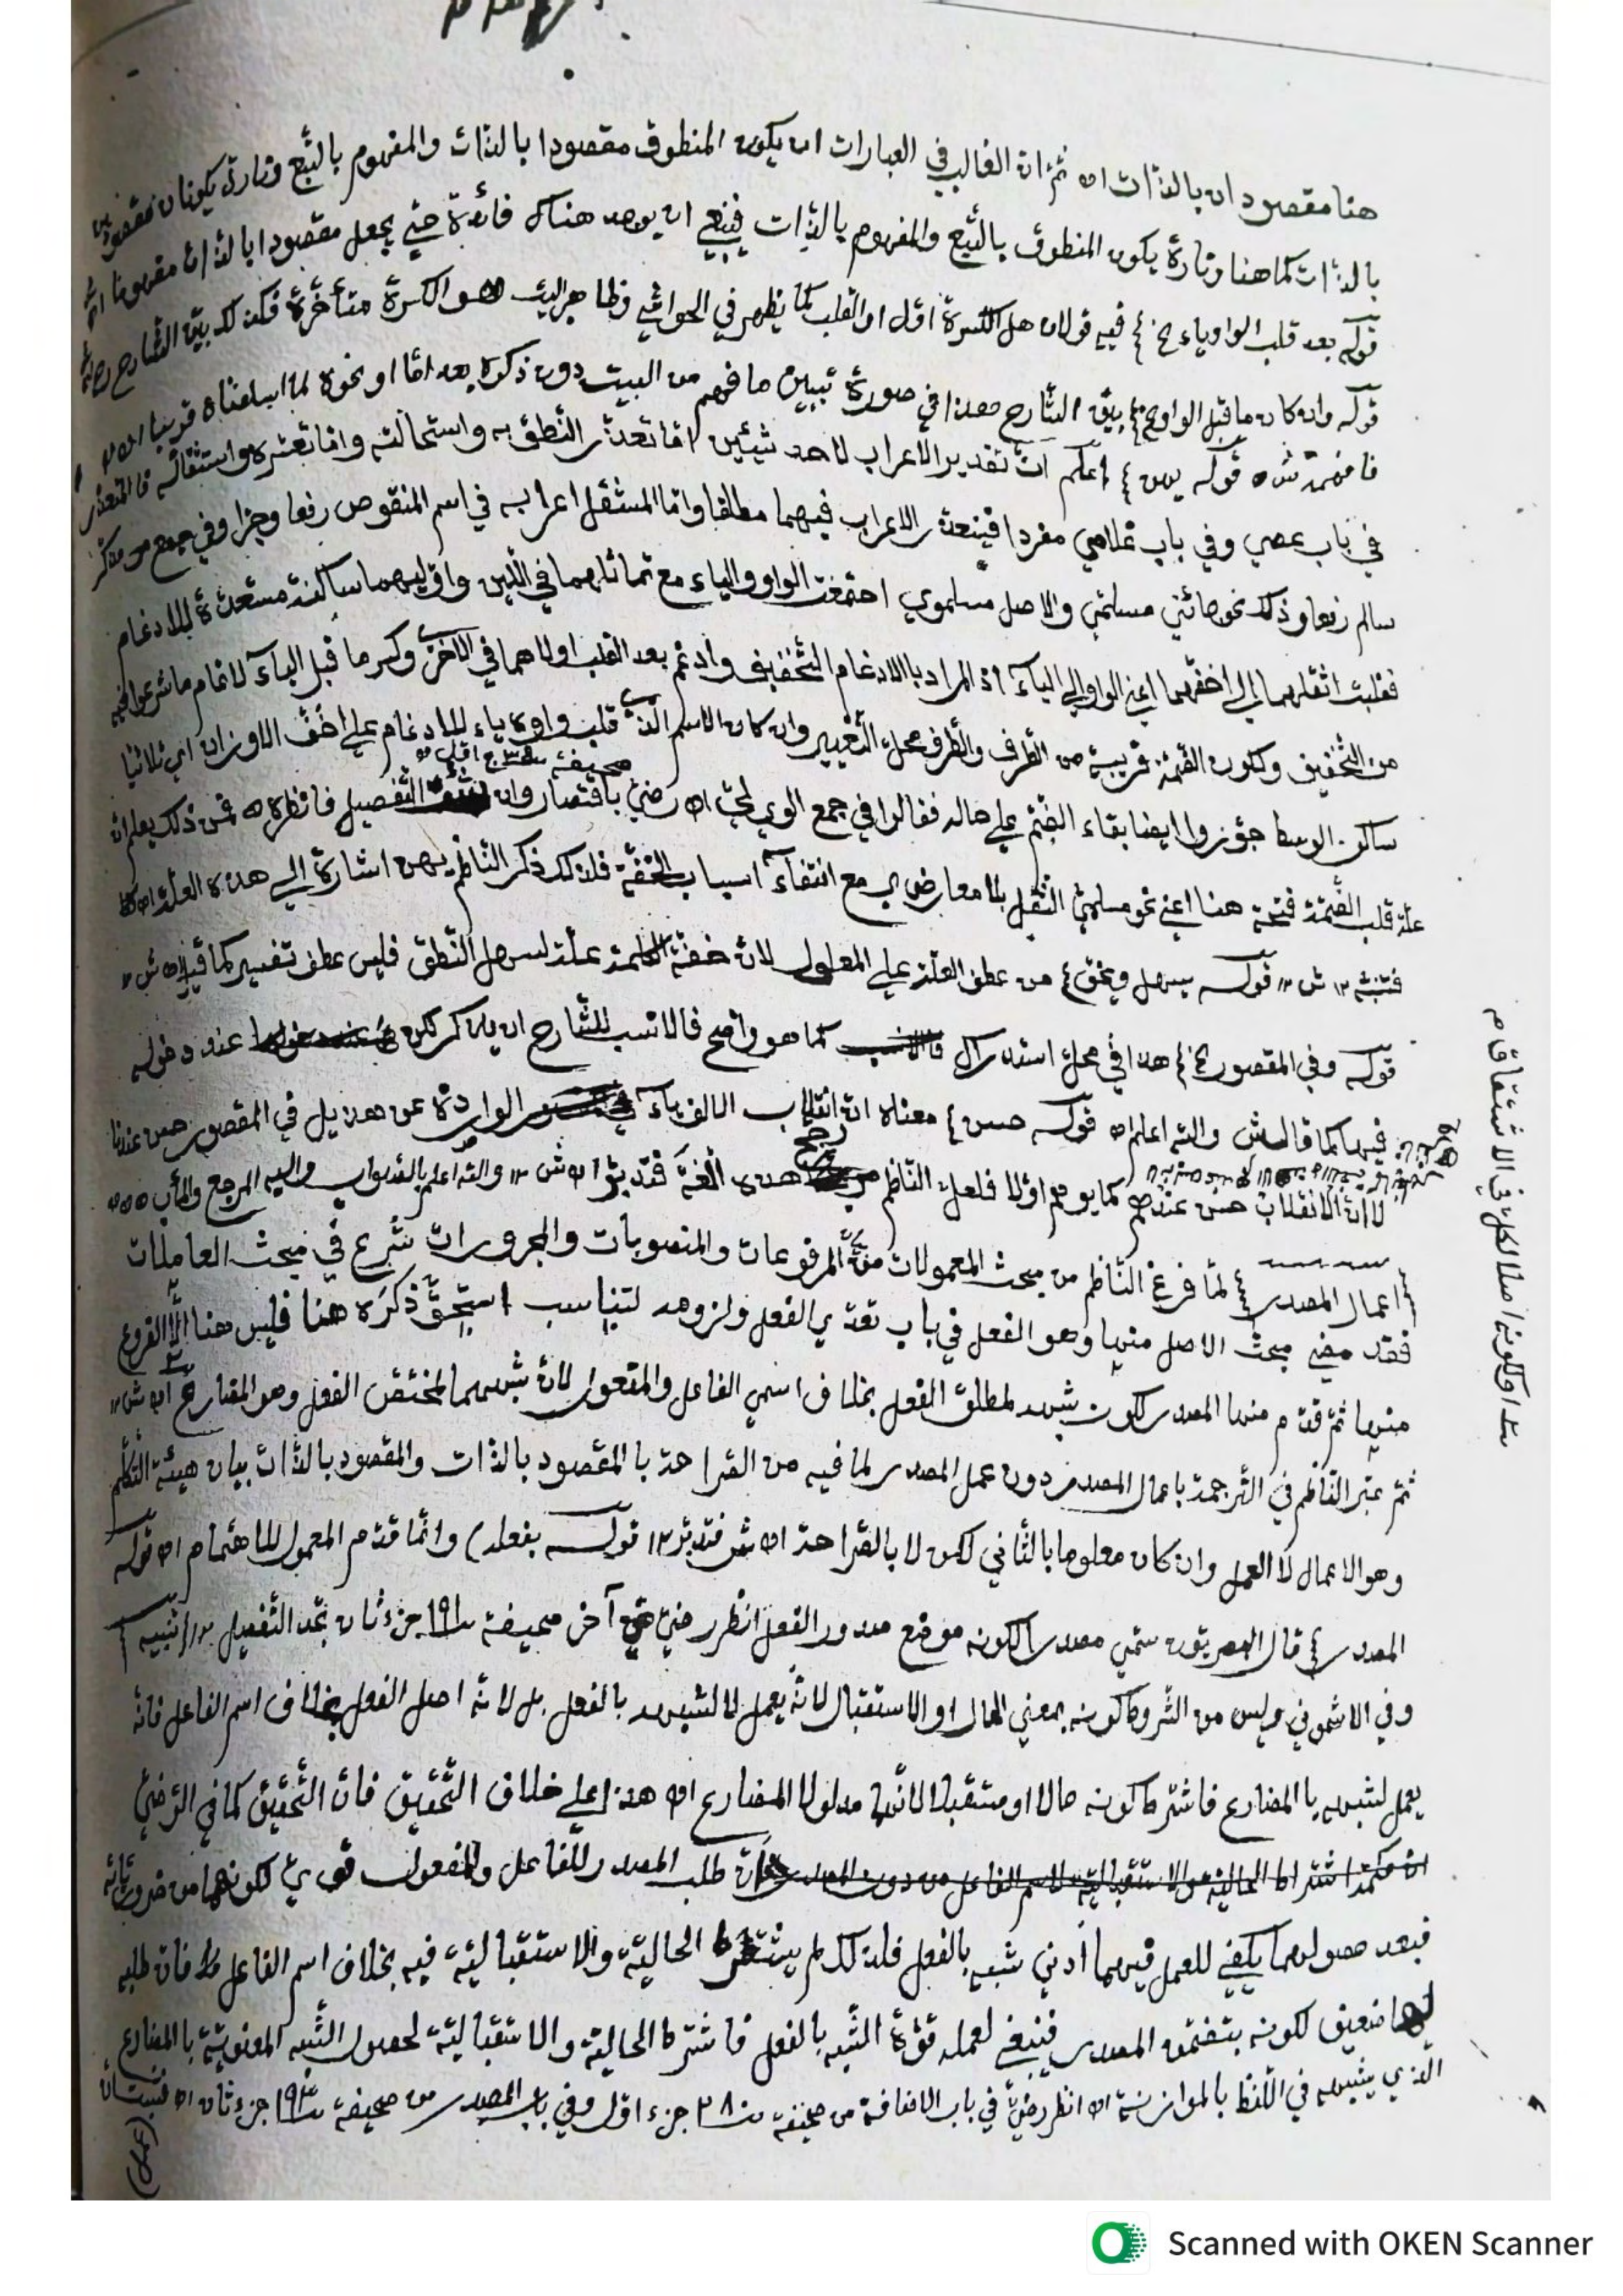 هنا مقصودان بالذات اه ثم ان الغالب في العبارات ان يكون المنطوق مقصودا بالذات والمفهوم بالتبع وتارة يكونان مقصودين
بالذات كما هنا وتارة يكون المنطوق بالتبع والمفهوم بالذات فينبغي ان يوجد هناك فائدة حتي يجعل مقصودا بالذات مفهوما
قوله بعد قلب الواو ياء الخ فيه قولان هل الكسرة اول او القلب كما يظهر في الحواشي وظاهر البيت هو الكسرة متأخرة فكذلك بيّن الشارح
قوله وان كان ما قبل الواو الخ بيّن الشارح هذا في صورة تبيين ما فهم من البيت دون ذكره بعد اما او نحوه لما اسلفناه قريبا
فافهم ش اه قوله يهن اعلم ان تقدير الاعراب لاحد شيئين اما تعذر النطق به واستحالته واما تعسره واستثقاله فالمتعذر
في باب عصي وفي باب غلامي مفردا فيتعذر الاعراب فيهما مطلقا واما المستثقل اعرابه في اسم المنقوص رفعا وجرا وفي جمع مذكر
سالم رفعا وذلك نحو جائني مسلمي والاصل مسلموي اجتمعت الواو والياء مع تماثلهما في اللين واوليهما ساكنة مستعدة للادغام
فقلبت اثقلهما الي اخفهما اعني الواو الي الياء اذ المراد بالادغام التخفيف وادغم بعد القلب اولاهما في الاخري وكسر ما قبل الياء لاتمام ما شرعوا فيه
من التخفيف ولكون الضمة قريبة من الطرف والطرف محل التغيير وان كان الاسم الذي قلب واوه ياء للادغام علي اخف الاوزان اي ثلاثيا
ساكن الوسط جوزوا ايضا بقاء الضم علي حاله فقالوا في جمع الوي لي اه رضي باقتصار وان شئت التفصيل فانظره اه فمن ذلك يعلم ان
علة قلب الضمة فتحة هنا اعني نحو مسلمي الثقل بلا معارض ي مع انتفاء اسباب الخفة فلذلك ذكر الناظم يهن اشارة الي هذه العلة
فتنبه ١٢ ش ١٢ قوله يسهل ويخف من عطف العلة علي المعلول لان خفة الكلمة علة لسهل النطق فليس عطف تفسير كما قيل اه ش ١٢
قوله وفي المقصور الخ هذا في محل استدراك كما هو واضح فالانسب للشارح ان يذكر لكن عند دخوله
فيها كما قال ش والله اعلم اه قوله حسن معناه ان انقلاب الالف ياء الواردة عن هذيل في المقصور حسن عندنا
لا ان الانقلاب حسن عندهم كما يوهم اولا فلعل الناظم رجح هذه اللغة فتدبر اه ش ١٢ والله اعلم بالصواب واليه المرجع والمآب
اعمال المصدر لما فرغ الناظم من مبحث المعمولات من المرفوعات والمنصوبات والمجرورات شرع في مبحث العاملات
فقد مضي مبحث الاصل منها وهو الفعل في باب تعدي الفعل ولزومه لتناسب استحق ذكره هنا فليس هنا الا الفروع
منها ثم قدم منها المصدر لكون شبهه لمطلق الفعل بخلاف اسمي الفاعل والمفعول لان شبههما لمختص الفعل وهو المضارع اه ش ١٢
ثم عبر الناظم في الترجمة باعمال المصدر دون عمل المصدر لما فيه من الصراحة بالمقصود بالذات والمقصود بالذات بيان هيئة التكلم
وهو الاعمال لا العمل وان كان معلوما بالثاني لكن لا بالصراحة اه ش فتدبر ١٢ قوله بفعله) وانما قدم المعمول للاهتمام اه قوله
المصدر قال البصريون سمي مصدرا لكونه موضع صدور الفعل انظر رضي آخر صحيفة ١٩١ جزء ثان تجد التفصيل ١٢ تنبيه
وفي الاشموني وليس من الشروط كونه بمعني الحال او الاستقبال لانه يعمل لا لشبهه بالفعل بل لانه اصل الفعل بخلاف اسم الفاعل فانه
يعمل لشبهه بالمضارع فاشترط كونه حالا او مستقبلا لانهما مدلولا المضارع اه هذا علي خلاف التحقيق فان التحقيق كما في الرضي
ان طلب المصدر للفاعل والمفعول قوي لكونهما من ضرورياته
فبعد حصولهما يكفي للعمل فيهما أدني شبه بالفعل فلذلك لم يشترط الحالية والاستقبالية فيه بخلاف اسم الفاعل فان طلبه
لهما ضعيف لكونه بتضمنه المصدر فينبغي لعمله قوة الشبه بالفعل فاشترط الحالية والاستقبالية لحصول الشبه المعنوية بالمضارع
الذي يشبهه في اللفظ بالموازنة اه انظر رضي في باب الاضافة من صحيفة ٢٨٠ جزء اول وفي باب المصدر من صحيفة ١٩٣ جزء ثان
(عمل)
او لكونه اصلا لكل في الاشتقاق م
Scanned with OKEN Scanner